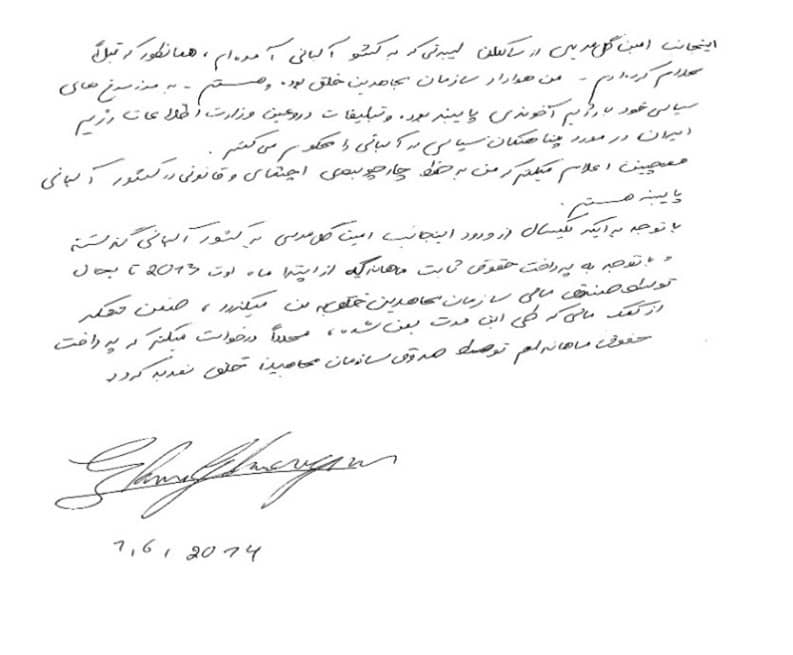 اینجانب امین گل مریمی از ساکنان لیبرتی که به کشور آلبانی آمده‌ام، همانطور که قبلاً
اعلام کرده‌ام - من هوادار سازمان مجاهدین خلق بوده و هستم - به مرزسرخ های
سیاسی خود با رژیم آخوندی پایبند بوده و تبلیغات دروغین وزارت اطلاعات رژیم
ایران در مورد پناهندگان سیاسی در آلبانی را محکوم می‌کنم.
همچنین اعلام میکنم که من به حفظ چارچوبهای اجتماعی و قانونی در کشور آلبانی
پایبند هستم.
با توجه به اینکه یکسال از ورود اینجانب امین گل مریمی به کشور آلبانی گذشته
و با توجه به پرداخت حقوق ثابت ماهانه‌ایکه از ابتدا ماه اوت 2013 تا بحال
توسط صندوق مالی سازمان مجاهدین خلق به من میگردد، ضمن تشکر
از کمک مالی که طی این مدت بمن شده، مجدداً درخواست میکنم که پرداخت
حقوق ماهانه‌ام توسط صندوق سازمان مجاهدین خلق گردد
1,6, 2014